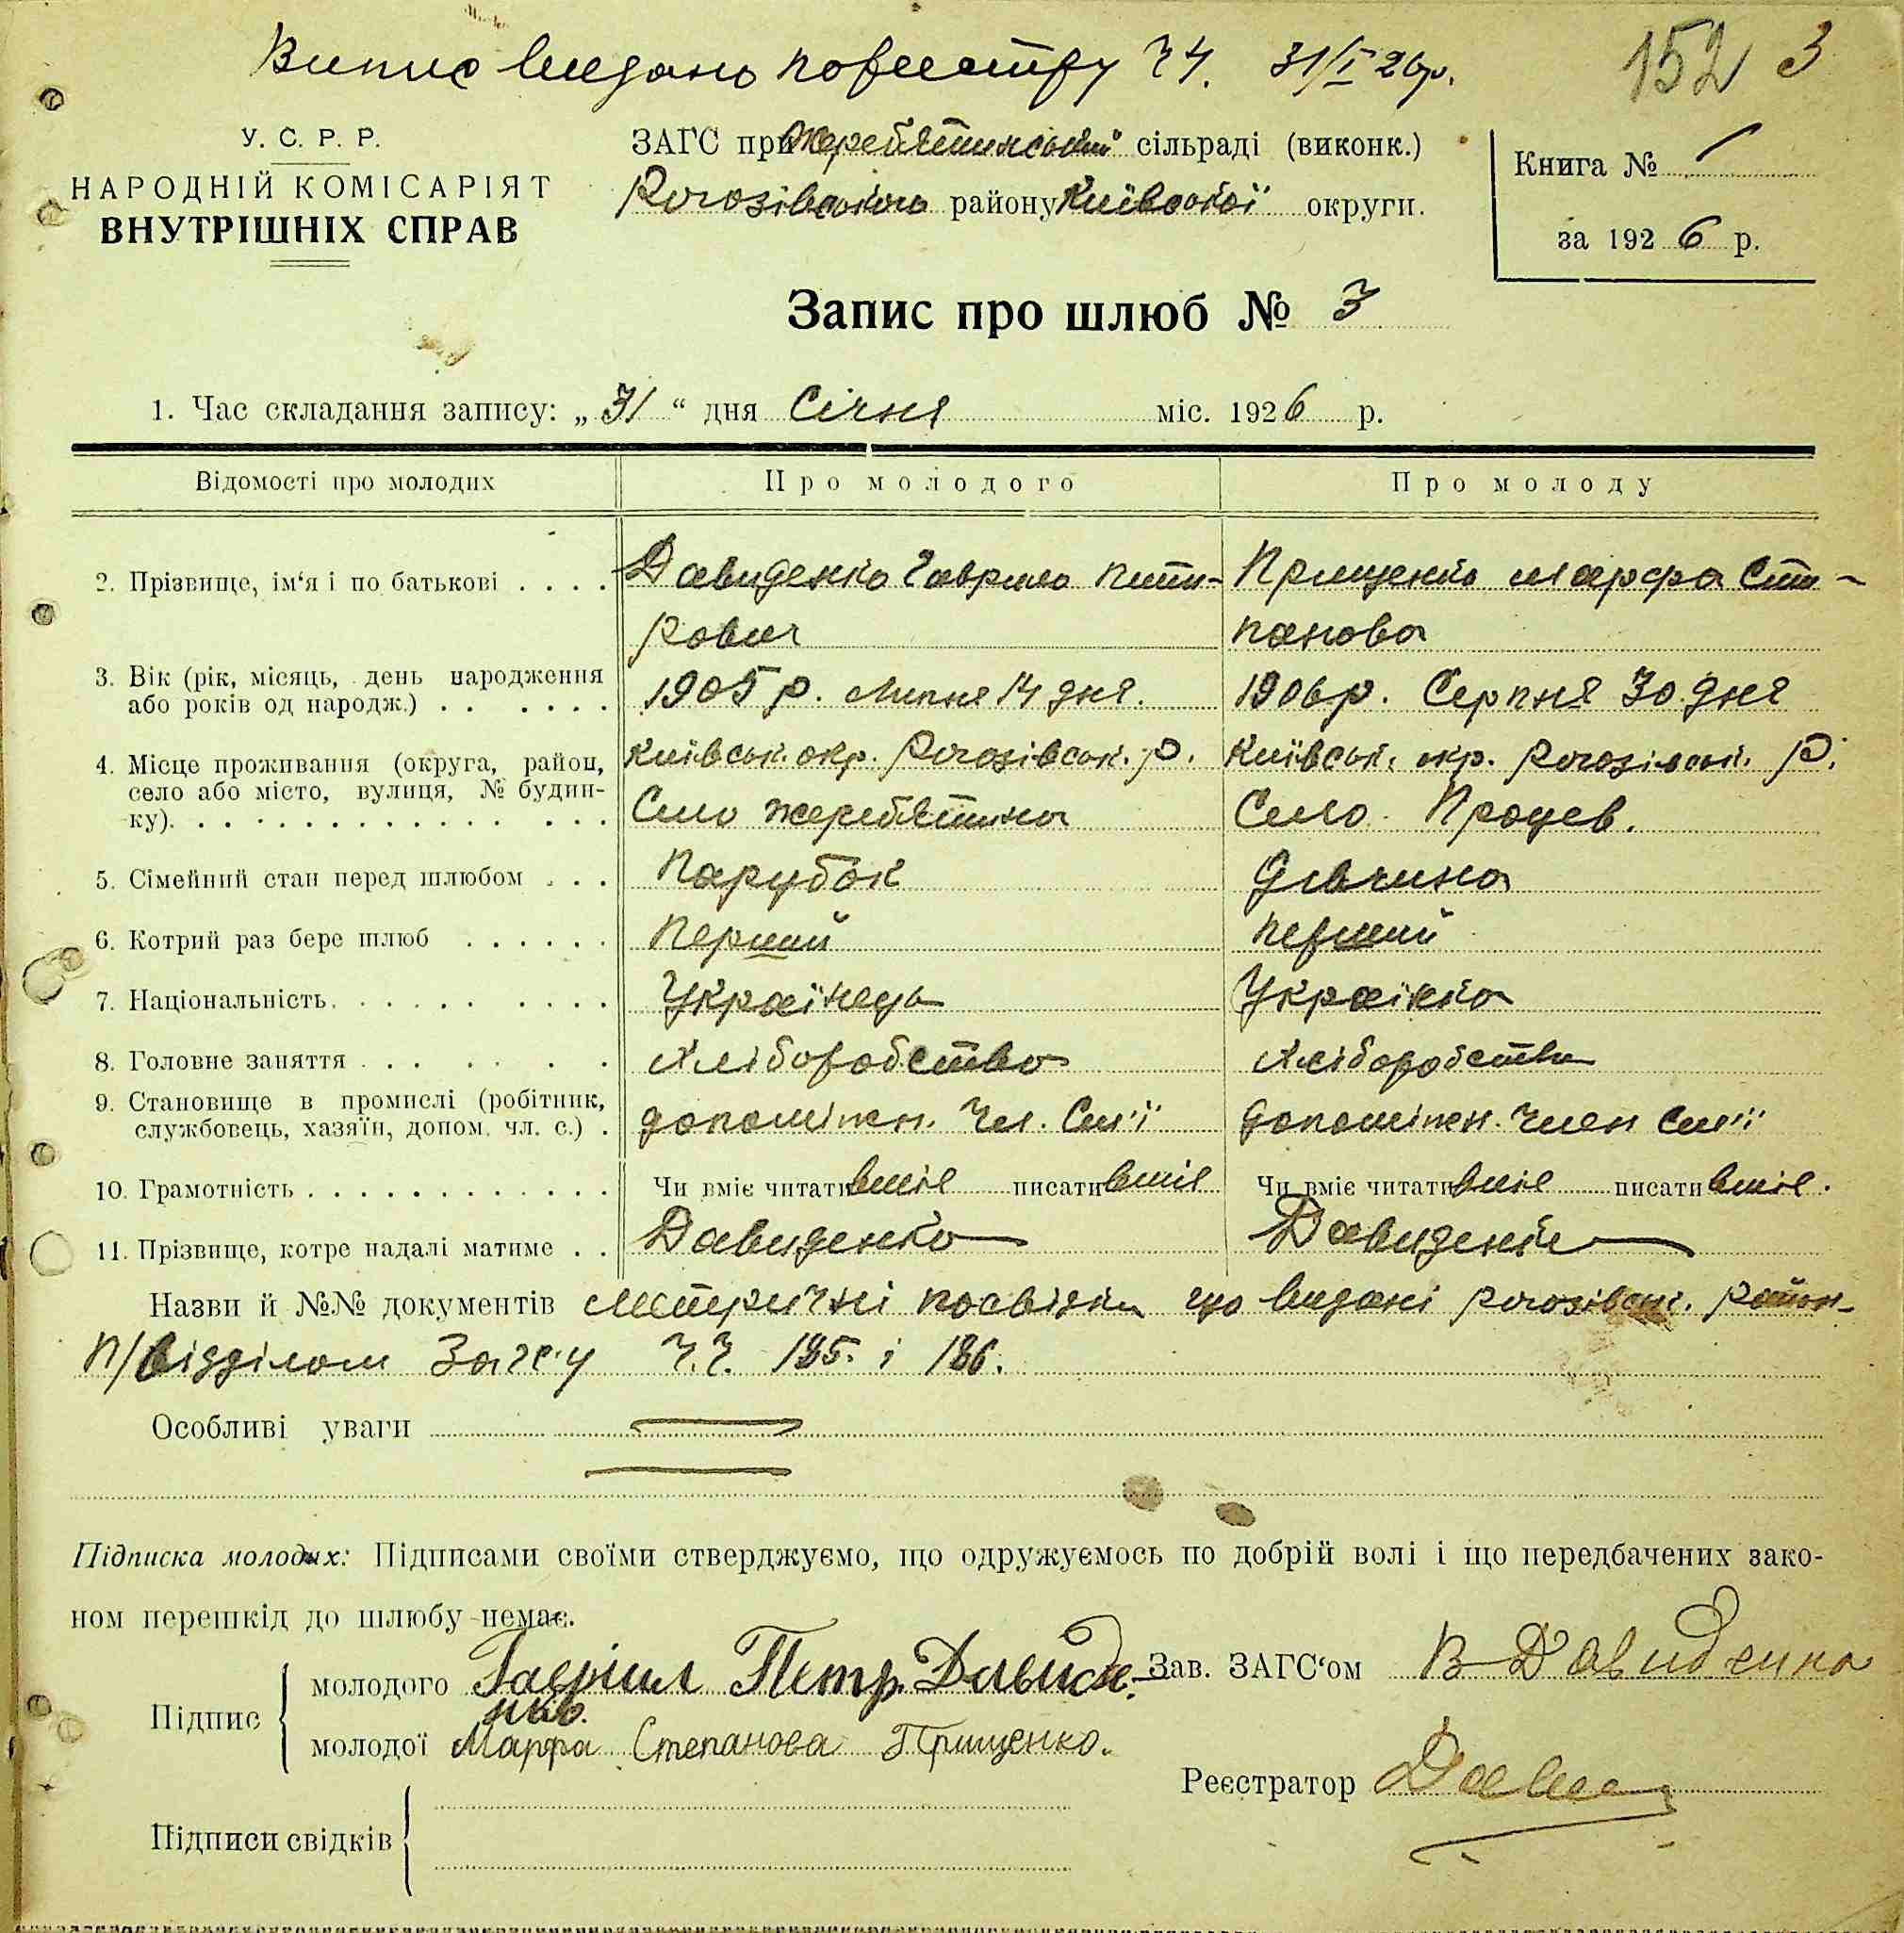 Випис видано по реестру Ч 4. 31/I 26 р.
152 3
У. С. Р. Р.
НАРОДНІЙ КОМІСАРІЯТ
ВНУТРІШНІХ СПРАВ
ЗАГС при Жеребятинській сільраді (виконк.)
Рогозівського району Київської округи.
Книга № 1
за 1926 р.
Запис про шлюб № 3
1. Час складання запису: „31“ дня Січня міс. 1926 р.
Відомості про молодих Про молодого Про молоду
2. Прізвище, ім‘я і по батькові . . . . Давиденко Гаврило Пити- Прищенко Марфа Сти-
рович панова
3. Вік (рік, місяць, день народження
або років од народж.) . . . . . . 1905 р. Липня 14 дня. 1906 р. Серпня 30 дня
4. Місце проживання (округа, район, Київськ. окр. Рогозівськ. р. Київськ. окр. Рогозівськ. р.
село або місто, вулиця, № будин-
ку). . . . . . . . . . . . . . . . Село Жеребятина Село Процев.
5. Сімейний стан перед шлюбом . . . Парубок Дівчина
6. Котрий раз бере шлюб . . . . . . Перший Перший
7. Національність. . . . . . . . . . Українець Українка
8. Головне заняття . . . . . . Хліборобство Хліборобство
9. Становище в промислі (робітник,
службовець, хазяїн, допом. чл. с.) . допоміжн. Чл. Сим'ї допоміжн. Член Сим'ї
10. Грамотність . . . . . . . . . . . . . Чи вміє читати вміє писати вміє Чи вміє читати вміє писати вміє.
11. Прізвище, котре надалі матиме . . Давиденко Давиденко
Назви й №№ документів Метричні посвідки що видані Рогозівськ. район.
п/відділом Загсу Ч.Ч. 185. і 186.
Особливі уваги
Підписка молодих: Підписами своїми стверджуємо, що одружуємось по добрій волі і що передбачених зако-
ном перешкід до шлюбу немає.
Підпис
молодого Гавриил Петр. Давиде-
нко.
молодої Марфа Степанова Прищенко.
Зав. ЗАГС‘ом В Давиденко
Реєстратор
Підписи свідків